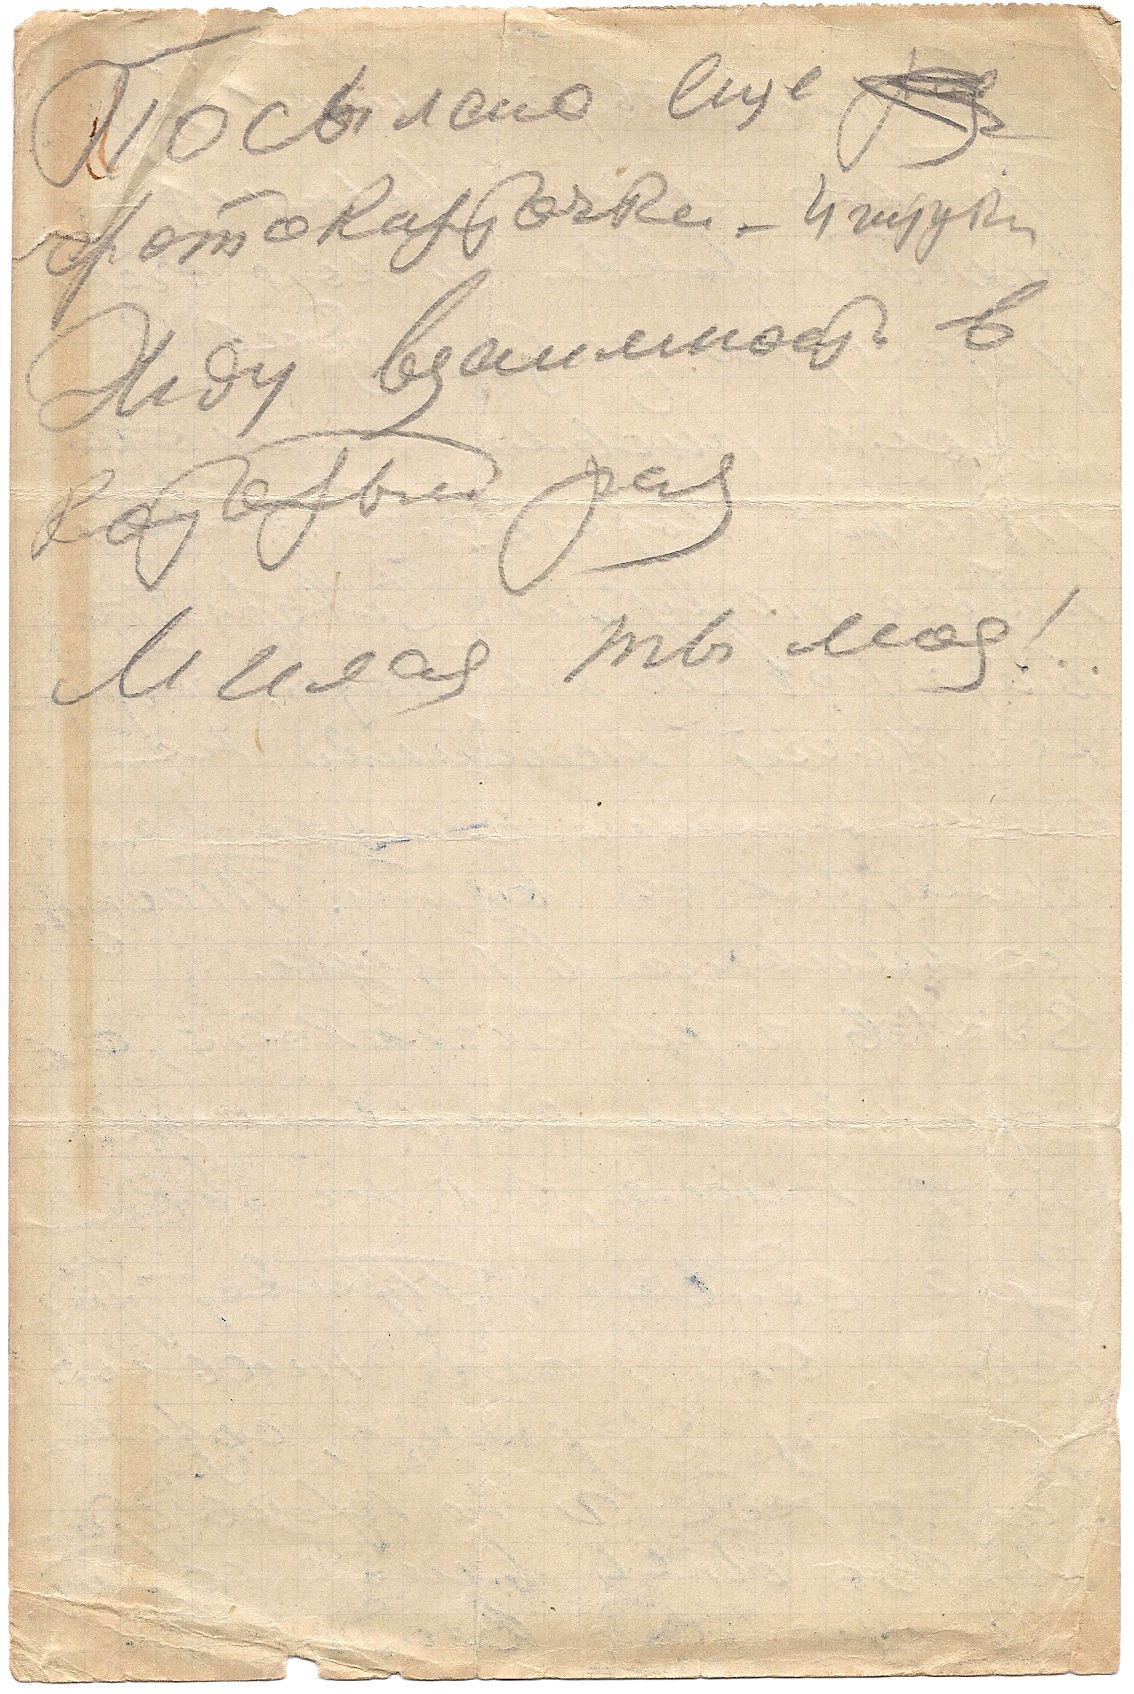 Посылаю еще
фотокарточки - 4 штуки
Жду взаимност в
который раз
Милая ты моя!..